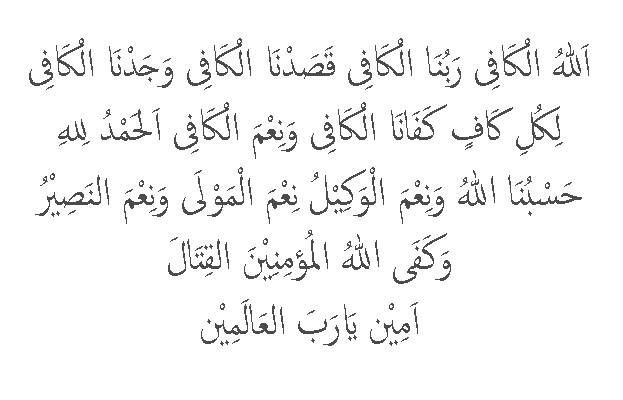 اَللهُ الْكَافِى رَبُنَا الْكَافِى قَصَدْنَا الْكَافِى وَجَدْنَا الْكَافِى
لِكُلِ كَافٍ كَفَانَا الْكَافِى وَنِعْمَ الْكَافِى اَلحَمْدُ لِلهِ
حَسْبُنَا اللهُ وَنِعْمَ الْوَكِيْلُ نِعْمَ الْمَوْلَى وَنِعْمَ النَصِيْرُ
وَكَفَى اللهُ المُؤمِنِيْنَ القِتَالَ
اَمِيْن يَارَبَ العَالَمِيْن